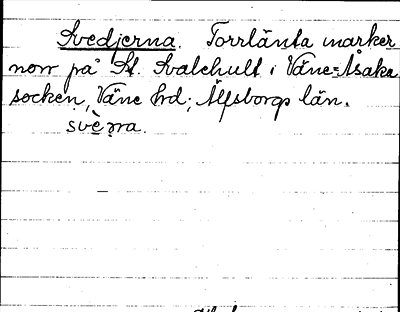 Svedjerna. Torrlänta marker
norr på St. Svalehult i Väne-Åsaka
socken, Väne hd; Älfsborgs län.
svèrra.